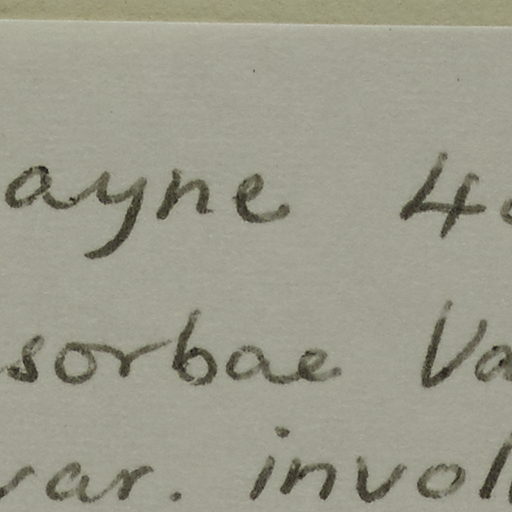 ayne 40
sorbae Va
var. invol